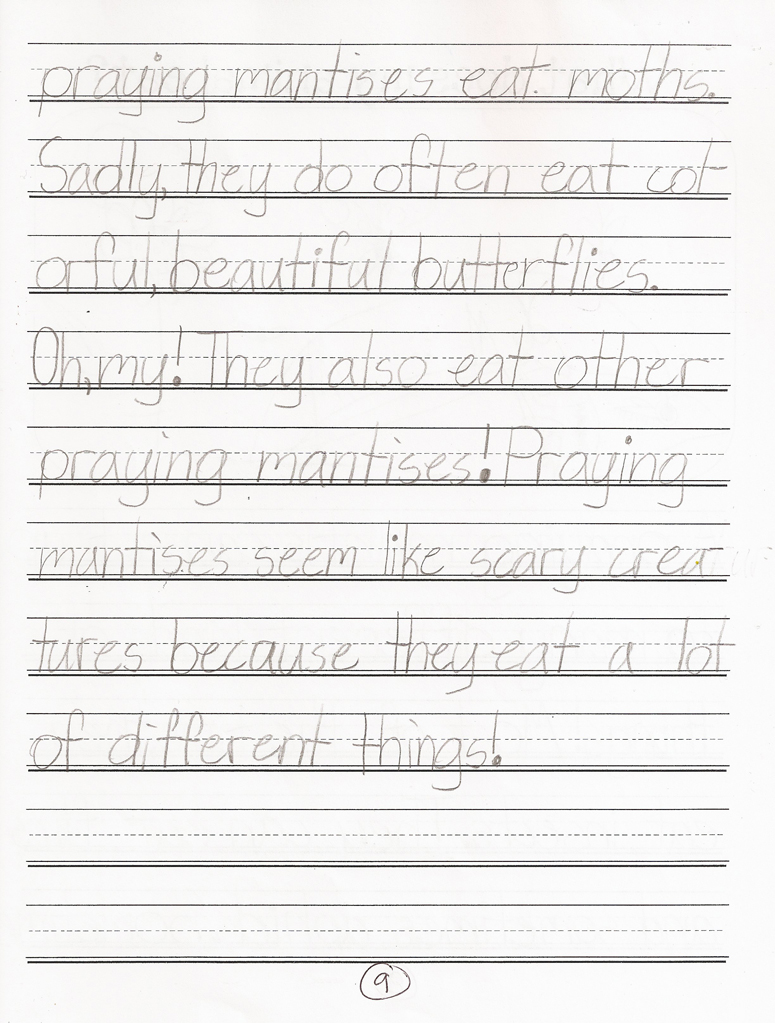 praying mantises eat moths.
Sadly, they do often eat col-
orful, beautiful butterflies.
Oh, my! They also eat other
praying mantises! Praying
mantises seem like scary crea-
tures because they eat a lot
of different things!
9